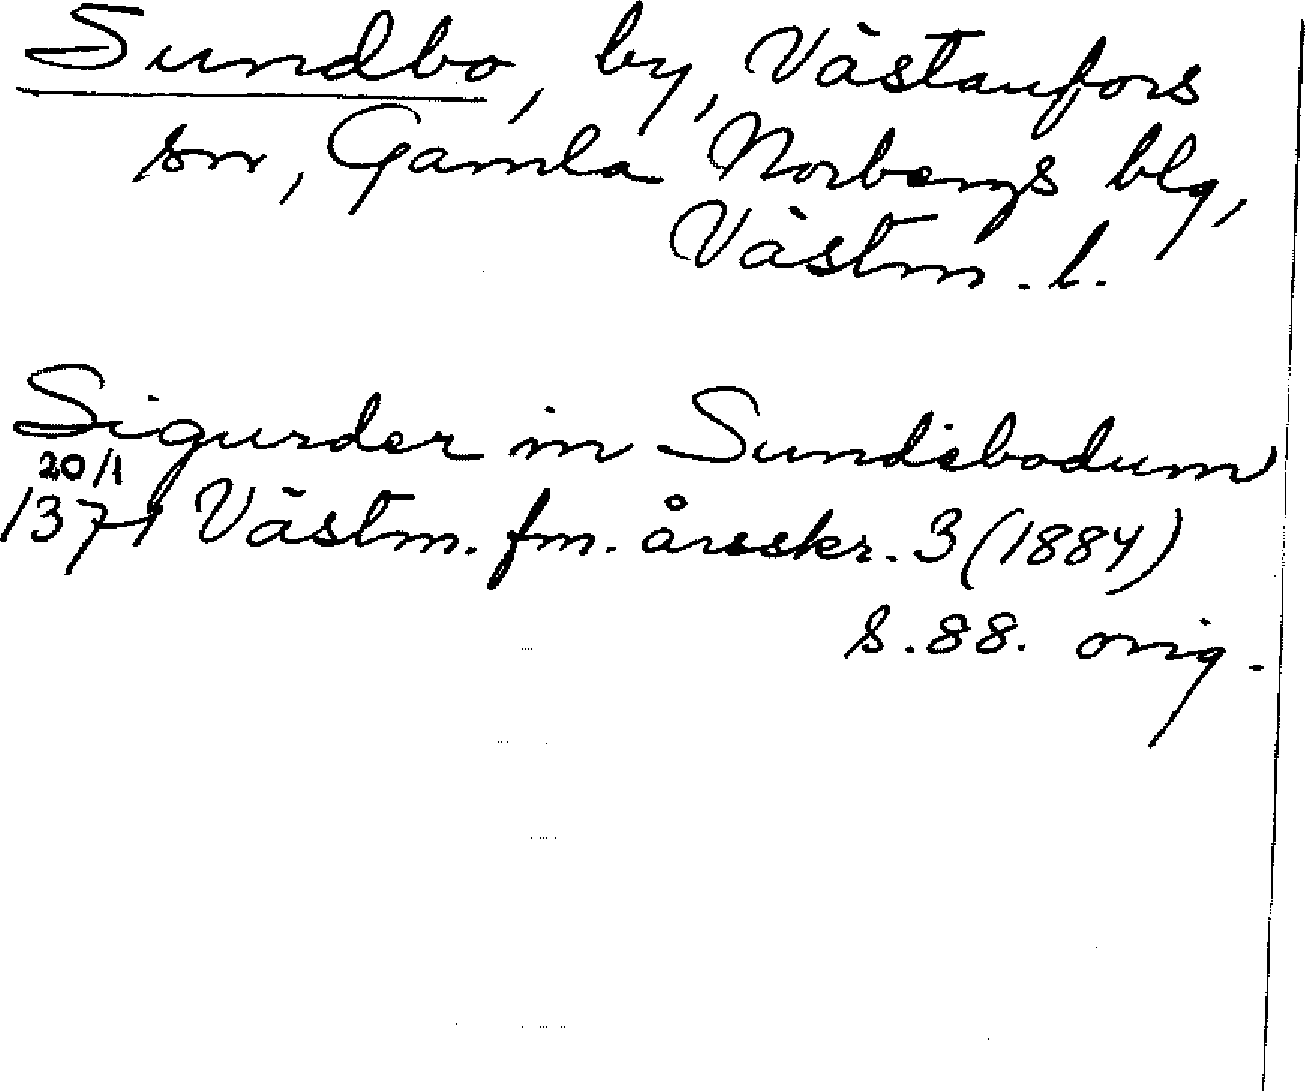 Sundbo, by, Västanfors
sn, Gamla Norbergs blg,
Västm. l.
Sigurder in Sundebodum
20/1
1371 Västm. fm. årsskr. 3 (1884)
s. 88. orig.